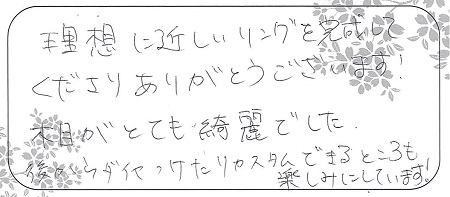 理想に近しいリングを完成して
くださりありがとうございます!
木目がとても綺麗でした.
後からダイヤつけたりカスタムできるところも
楽しみにしています!